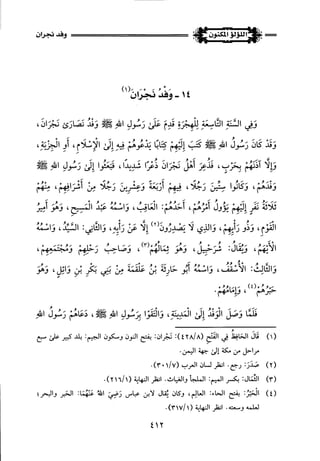 اللؤلؤ المكنون
وفد نجران
١٤ - وَفْدُ نَجْرَانَ (١)
وَفِي السَّنَةِ التَّاسِعَةِ لِلْهِجْرَةِ قَدِمَ عَلَى رَسُولِ اللهِ ﷺ وَفْدُ نَصَارَى نَجْرَانَ،
وَقَدْ كَانَ رَسُولُ اللهِ ﷺ كَتَبَ إِلَيْهِمْ كِتَابًا يَدْعُوهُمْ فِيهِ إِلَى الْإِسْلَامِ، أَوِ الْجِزْيَةِ،
وَإِلَّا آذَنَهُمْ بِحَرْبٍ، فَذُعِرَ أَهْلُ نَجْرَانَ ذُعْرًا شَدِيدًا، فَبَعَثُوا إِلَى رَسُولِ اللهِ ﷺ
وَفْدَهُمْ، وَكَانُوا سِتِّينَ رَجُلًا، فِيهِمْ أَرْبَعَةٌ وَعِشْرِينَ رَجُلًا مِنْ أَشْرَافِهِمْ، مِنْهُمْ
ثَلَاثَةُ نَفَرٍ إِلَيْهِمْ يَؤُولُ أَمْرُهُمْ، أَحَدُهُمْ: الْعَاقِبُ، وَاسْمُهُ عَبْدُ الْمَسِيحِ، وَهُوَ أَمِيرُ
الْقَوْمِ، وَذُو رَأْيِهِمْ، وَالَّذِي لَا يَصْدُرُونَ (٢) إِلَّا عَنْ رَأْيِهِ، وَالثَّانِي: السَّيِّدُ، وَاسْمُهُ
الْأَيْهَمُ، وَيُقَالُ: شُرَحْبِيلُ، وَهُوَ ثِمَالُهُمْ (٣)، وَصَاحِبُ رَحْلِهِمْ وَمُجْتَمَعِهِمْ،
وَالثَّالِثُ: الْأُسْقُفُ، وَاسْمُهُ أَبُو حَارِثَةَ بْنُ عَلْقَمَةَ مِنْ بَنِي بَكْرِ بْنِ وَائِلٍ، وَهُوَ
حَبْرُهُمْ (٤)، وَإِمَامُهُمْ.
فَلَمَّا وَصَلَ الْوَفْدُ إِلَى الْمَدِينَةِ، وَالْتَقَوْا بِرَسُولِ اللهِ ﷺ، وَدَعَاهُمْ رَسُولُ اللهِ
(١) قال الحافظ في الفتح (٤٢٨/٨): نجران: بفتح النون وسكون الجيم: بلد كبير على سبع
مراحل من مكة إلى جهة اليمن.
(٢) صدر: رجع. انظر لسان العرب (٣٠١/٧).
(٣) الثمال: بكسر الميم: الملجأ والغياث. انظر النهاية (٢١٦/١).
(٤) الحبر: بفتح الحاء: العالم، وكان يقال لابن عباس رضي الله عنهما: الحبر والبحر؛
لعلمه وسعته. انظر النهاية (٣١٧/١).
٤١٢